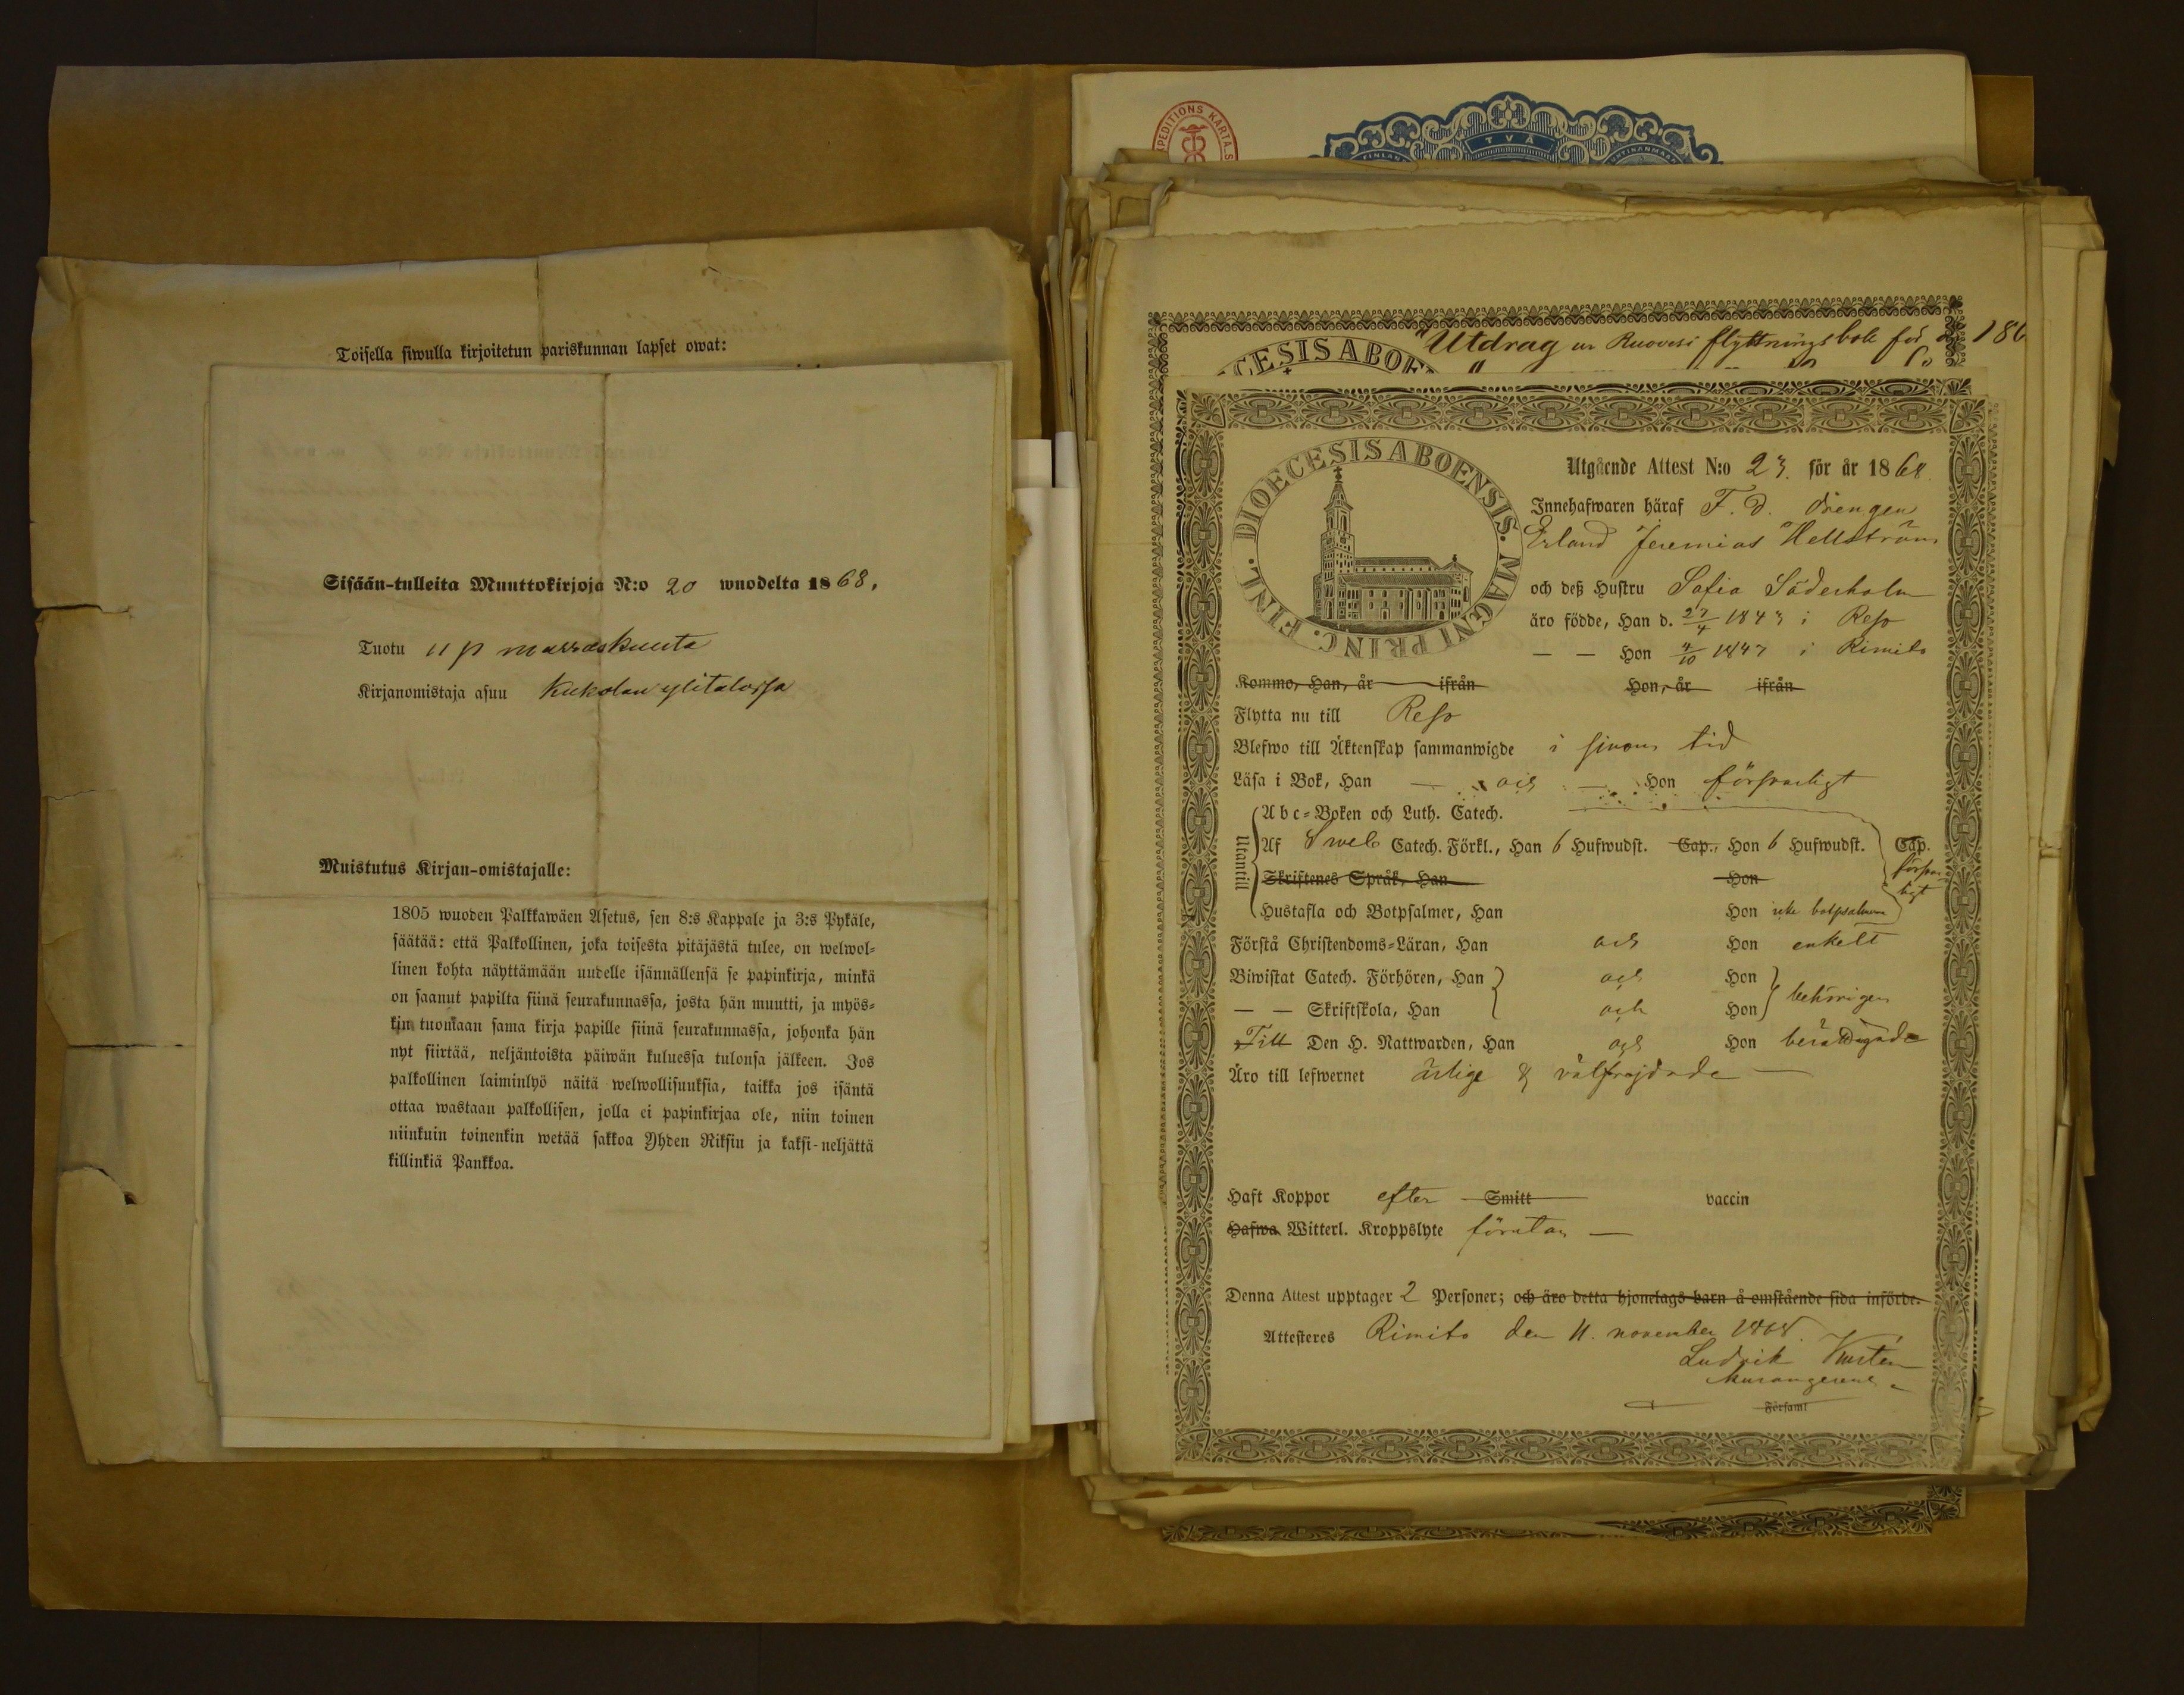 Toisella siwulla kirjoitetun pariskunnan lapset owat:
Sisään-tulleita Muuttokirjoja N:o 20 wuodelta 1868.
Tuotu 11 p marraskuuta
Kirjanomistaja asuu Kukolan ylitalossa
Muistutus Kirjan-omistajalle:
1805 wuoden Palkkawäen Asetus, sen 8:s Kappale ja 3:s Pykäle,
säätää: että Palkollinen, joka toisesta pitäjästä tulee, on welwol-
linen kohta näyttämään uudelle isännällensä se papinkirja, minkä
on saanut papilta siinä seurakunnassa, josta hän muutti, ja myös-
kin tuomaan sama kirja papille siinä seurakunnassa, johonka hän
nyt siirtää, neljäntoista päiwän kuluessa tulonsa jälkeen. Jos
palkollinen laiminlyö näitä welwollisuuksia, taikka jos isäntä
ottaa wastaan palkollisen, jolla ei papinkirjaa ole, niin toinen
niinkuin toinenkin wetää sakkoa Yhden Riksin ja kaksi-neljättä
killinkiä Pankkoa.
PEDITIONS KARTA.S
TVÅ
FINLAN
Utdrag ur Ruovesi flyttningsbok för år 186
CESIS ABOE
DIOECESIS ABOENSIS. MAGNI PRINC. FINL.
Utgående Attest N:o 23. för år 1868.
Innehafwaren häraf F. d. drengen
Erland Jeremias Hellström
och deß Hustru Sofia Söderholm
äro födde, Han d. 27/4 1843 i Reso
— — Hon 4/10 1847 i Rimito
Kommo, Han, år ifrån Hon, år ifrån
Flytta nu till Reso
Blefwo till Äktenskap sammanwigde i sinom tid
Läsa i Bok, Han — och — Hon förswarligt
Utantill
Abc-Boken och Luth. Catech.
Af Sweb Catech. Förkl., Han 6 Hufwudst. Cap., Hon 6 Hufwudst. Cap.
förswarligt
Skriftenes Språk, Han Hon
Hustafla och Botpsalmer, Han Hon icke botpsalmer
Förstå Christendoms-Läran, Han och Hon enkelt
Biwistat Catech. Förhören, Han och Hon
— — Skriftskola, Han och Hon behörigen
Till Den H. Nattwarden, Han och Hon berättigade
Äro till lefwernet ärlige & välfrejdade —
Haft Koppor efter Smitt vaccin
Hafwa Witterl. Kroppslyte förutan —
Denna Attest upptager 2 Personer; och äro detta hjonelags barn å omstående sida införde.
Attesteres Rimito den 11. november 1868.
Ludvik
Församl